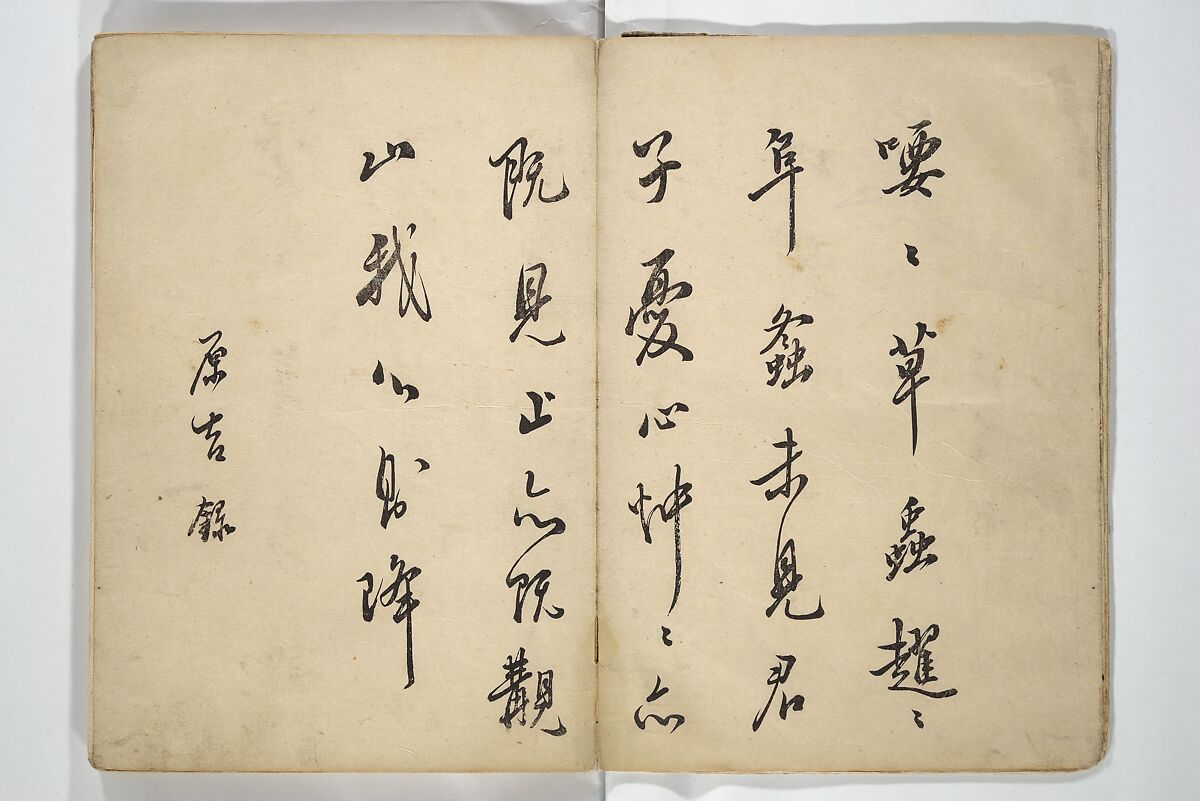 喓〻草蟲趯〻
阜螽未見君
子憂心忡〻亦
既見止亦既覯
止我心則降
原吉錄